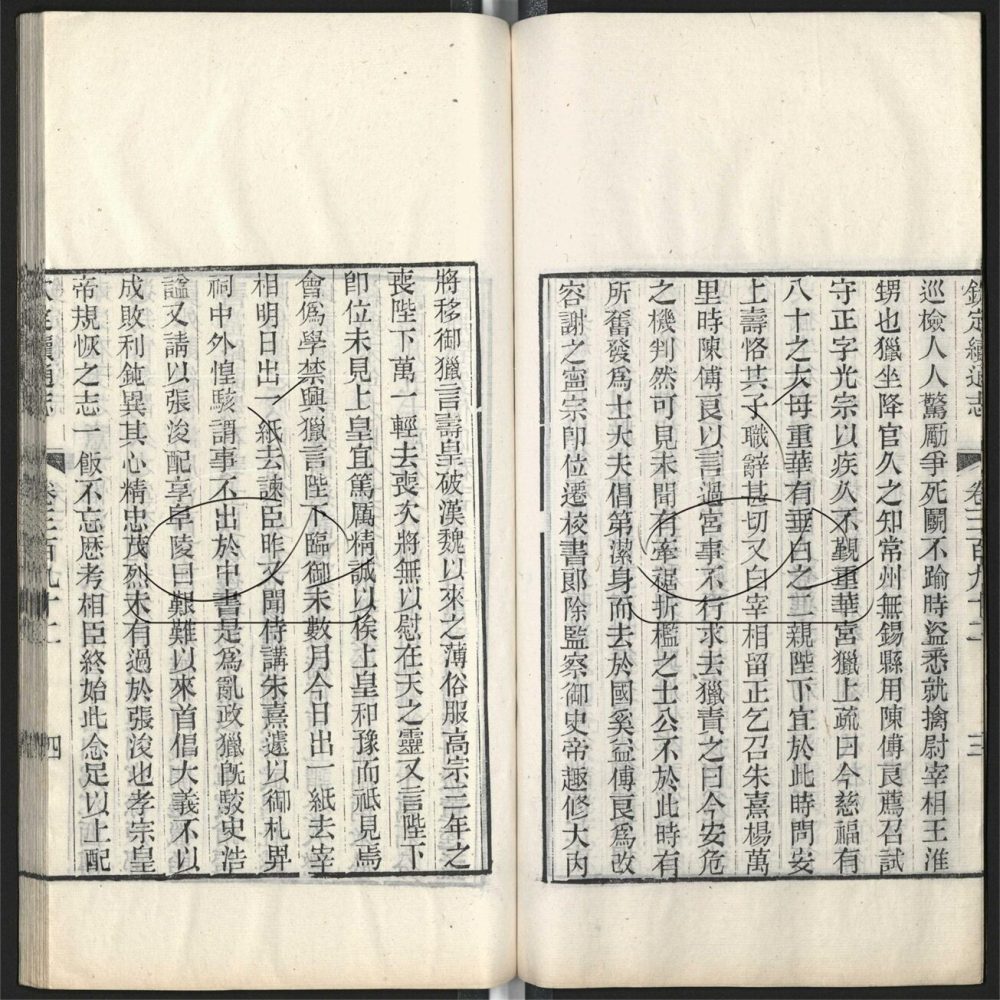 欽定續通志 卷三百九十二 三
巡檢人人驚勵爭死鬬不踰時盜悉就擒尉宰相王淮
甥也獵坐降官久之知常州無錫縣用陳傅良薦召試
守正字光宗以疾久不覲重華宮獵上疏曰今慈福有
八十之大母重華有垂白之二親陛下宜於此時問安
上壽恪共子職辭甚切又白宰相留正乞召朱熹楊萬
里時陳傅良以言過宮事不行求去獵責之曰今安危
之機判然可見未聞有牽裾折檻之士公不於此時有
所奮發爲士大夫倡第潔身而去於國奚益傅良爲改
容謝之寧宗卽位遷校書郞除監察御史帝趣修大內
將移御獵言壽皇破漢魏以來之薄俗服高宗三年之
喪陛下萬一輕去喪次將無以慰在天之靈又言陛下
卽位未見上皇宜篤厲精誠以俟上皇和豫而祗見焉
會僞學禁興獵言陛下臨御未數月今日出一紙去宰
相明日出一紙去諫臣昨又聞侍講朱熹遽以御札畀
祠中外惶駭謂事不出於中書是爲亂政獵旣駮史浩
諡又請以張浚配享阜陵曰艱難以來首倡大義不以
成敗利鈍異其心精忠茂烈未有過於張浚也孝宗皇
帝規恢之志一飯不忘歷考相臣終始此念足以上配
續通志 卷三百九十二 四